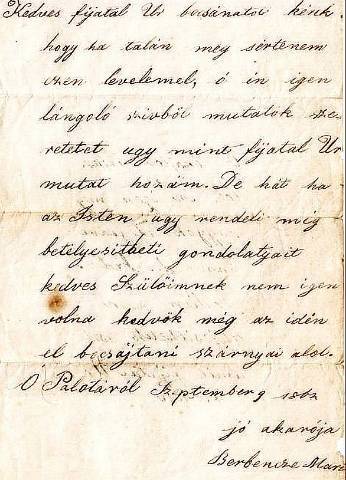 Kedves fijatal Úr bocsánatot kérek
hogy ha talán meg serteném
ezen levelemel, ő én igen
lángoló szivből mutatok sze
retetet ugy mint fijatal Ur
mutat hozám. De hát ha
az Isten ugy rendeli meg
betelyesitheti gondolatjait
kedves Szülőimnek nem igen
volna kedvök még az idén
el bocsájtani szárnyai alol.
Ó Palotáról Szptember 9 1862
jó akarója
Berbencze Mari